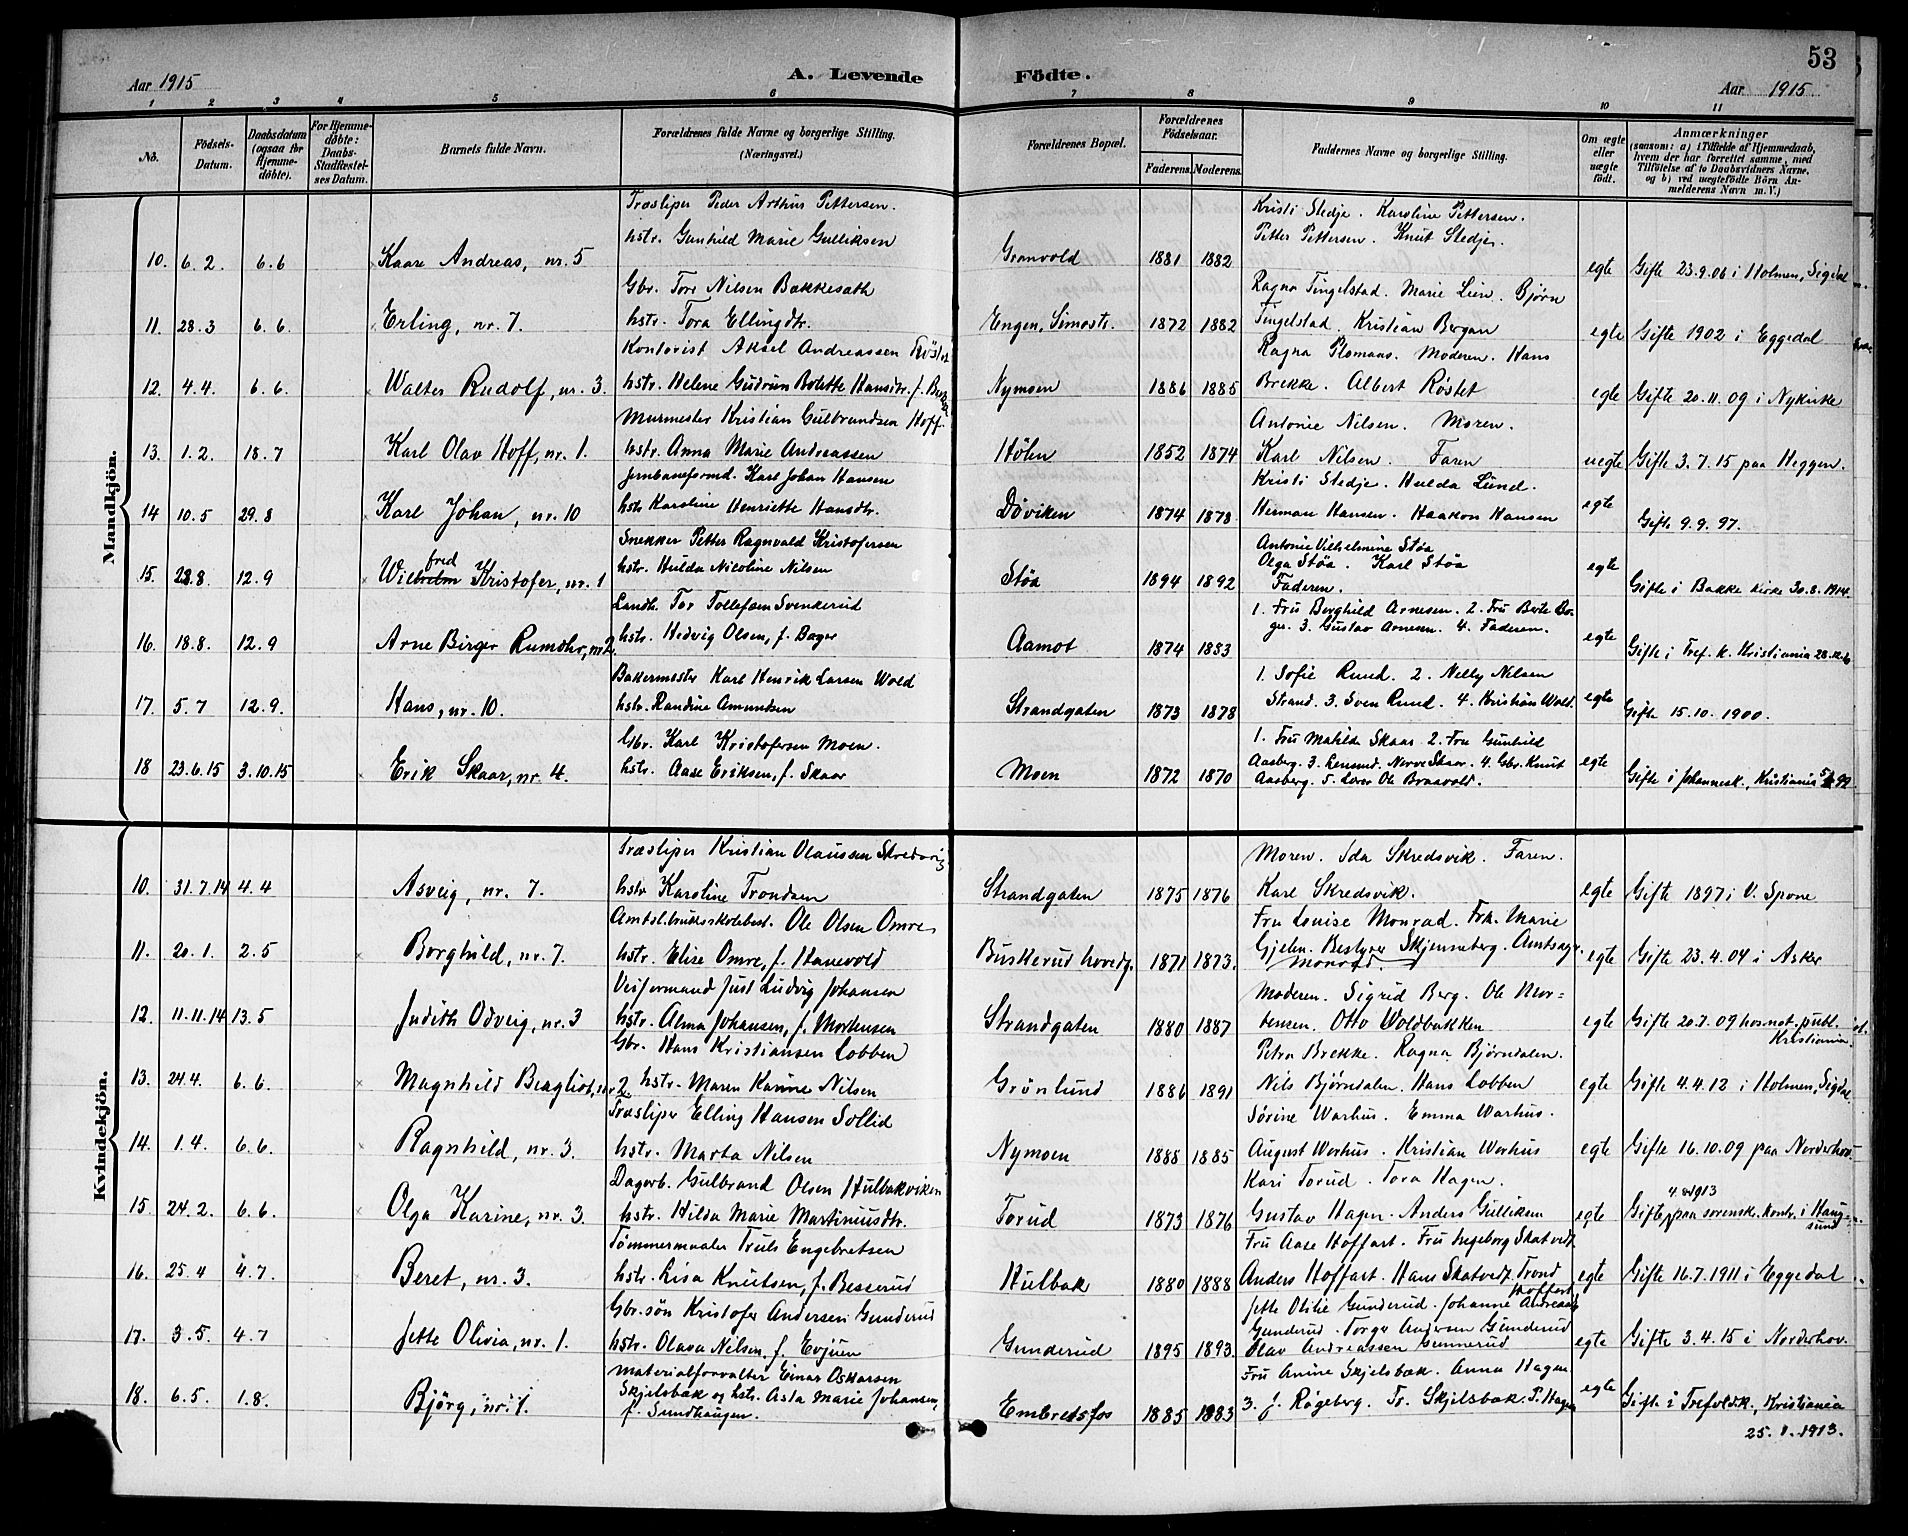 53
Aar 1915
A. Levende Födte.
Aar 1915
1 2 3 4 5 6 7 8 9 10 11
No.
Födsels-Datum.
Daabsdatum (ogsaa for Hjemmedöbte).
For Hjemmedöbte: Daabs-Stadfæstelses Datum.
Barnets fulde Navn.
Forældrenes fulde Navne og borgerlige Stilling. (Næringsvei.)
Forældrenes Bopæl.
Forældrenes Födselsaar.
Faderens. Moderens.
Faddernes Navne og borgerlige Stilling.
Om ægte eller uægte födt.
Anmærkninger (saasom: a) i Tilfælde af Hjemmedaab, hvem der har forrettet samme, med Tilföielse af to Daabsvidners Navne, og b) ved uægtefödte Börn Anmelderens Navn m. V.)
Mandkjön.
Træsliper Peder Arthur Pettersen.
Kristi Stedje. Karoline Pettersen.
hstr. Gunhild Marie Gulliksen
Petter Pettersen. Knut Stedje.
10. 6.2. 6.6 Kaare Andreas, nr. 5 Granvold 1881 1882 egte Gifte 23.9.06 i Holmen, Sigdal
Gbr. Tore Nilsen Bakkesath
Ragna Tingelstad. Marie Lien. Bjørn
11. 28.3 6.6. Erling, nr. 7. hstr. Tora Ellingdtr. Engen, Simostr. 1872 1882 Tingelstad. Kristian Bergan egte Gifte 1902 i Eggedal
Kontorist Aksel Andreassen Røstet
Ragna Plomaas. Moderen. Hans
12. 4.4. 6.6. Walter Rudolf, nr. 3. hstr. Helene Gudrun Bolette Hansdtr. f. Brekke Nymoen 1886 1885 Brekke. Albert Røstet egte Gifte 20.11.09 i Nykirke
Murmester Kristian Gulbrandsen Hoff.
Antonie Nilsen. Moren.
13. 1.2. 18.7 Karl Olav Hoff, nr. 1. hstr. Anna Marie Andreassen Hølen 1852 1874 Karl Nilsen. Faren uegte Gifte 3.7.15 paa Heggen.
Jernbaneformd. Karl Johan Hansen
Kristi Stedje. Hulda Lund.
14 10.5 29.8 Karl Johan, nr. 10 hstr Karoline Henriette Hansdtr. Döviken 1874 1878 Herman Hansen. Haakon Hansen egte Gifte 9.9.97.
Snekker Petter Ragnvald Kristofersen
Antonie Vilhelmine Støa
15. 28.8. 12.9 Wilhelm fred Kristofer, nr. 1 hstr. Hulda Nicoline Nilsen Støa 1894 1892 Olga Støa. Karl Støa egte Gifte i Bakke Kirke 30.8.1914.
Faderen.
Landh. Tor Tollefsen Svenkerud
1. Fru Borghild Arnesen. 2. Fru Berte Ba-
16. 18.8. 12.9 Arne Birger Rumohr, nr 2. hstr. Hedvig Olsen, f. Bager Aamot 1874 1883 ger. 3. Gustav Arnesen. 4. Faderen. egte Gifte i Tref. k. Kristiania
Bakermester Karl Henrik Larsen Wold
1. Sofie Ruud. 2. Nelly Nilsen
17. 5.7 12.9. Hans, nr. 10. hstr. Randine Amundsen Strandgaten 1873 1878 Strand. 3. Sven Ruud. 4. Kristian Wold. egte Gifte 15.10.1900.
Gbr. Karl Kristofersen Moen.
1. Fru Matilde Skaar 2. Fru Gunhild
18 23.6.15 3.10.15 Erik Skaar, nr. 4. hstr. Aase Eriksen, f. Skaar Moen 1872 1870 Aasberg. 3. Lensmd. Nerve Skaar. 4. Gbr. Knut egte Gifte i Johannesk., Kristiania
Aasberg. 5. Lærer Ole Braavold.
Kvindekjön.
Træsliper Kristian Olaussen Skredsvig
Moren. Ida Skredsvik. Faren.
10. 31.7.14 4.4 Asveig, nr. 7. hstr Karoline Trondsen Strandgaten 1875 1876 Karl Skredsvik. egte Gifte 1897 i V. Spone
Amtsl.bruksskolebest. Ole Olsen Omre
Fru Louise Monrad. Frk. Marie
11. 20.1. 2.5 Borghild, nr. 7. hstr. Elise Omre, f. Hanevold Buskerud hovedg. 1871 1873. Gjelen. Bestyrer Skjenneberg. Amtsagr. Monrad. egte Gifte 23.4.04 i Asker
Veiformand Just Ludvig Johansen
Moderen. Sigrid Berg. Ole Mor=
12. 11.11.14 13.5 Judith Odveig, nr. 3 hstr. Alma Johansen, f. Mortensen Strandgaten 1880 1887 tensen. Otto Woldbakken egte Gifte 20.7.09 hos not. publ. Kristiania.
Gbr. Hans Kristiansen Lobben
Petra Brekke. Ragna Bjørndalen.
13. 24.4. 6.6. Magnhild Bergliot, nr 2 hstr. Maren Karine Nilsen Grønlund 1886 1891 Nils Bjørndalen. Hans Lobben egte Gifte 4.4.12 i Holmen, Sigdal
Træsliper Elling Hansen Sollid
Sørine Warhus. Emma Warhus.
14. 1.4. 6.6. Ragnhild, nr. 3. hstr. Marta Nilsen Nymoen 1888 1885 August Worhus. Kristian Worhus egte Gifte 16.10.09 paa Norderhov
Dagarb. Gulbrand Olsen Hulbakviken
Kari Torud. Tora Hagen.
15 24.2. 6.6. Olga Karine, nr. 3. hstr. Hilda Marie Martiniusdtr. Torud 1873 1876 Gustav Hagen. Anders Gulliksen egte Gifte 4.8.1913 paa sorensk. kontr. i Haugsund
Tømmermaaler Truls Engebretsen
Fru Aase Hoffart. Fru Ingeborg Skatvedt
16. 25.4 4.7. Beret, nr. 3. hstr. Lisa Knutsen, f. Besserud Hulbak 1880 1888 Anders Hoffart. Hans Skatvedt. Trond Hoffart egte Gifte 16.7.1911 i Eggedal
Gbr.søn Kristofer Andersen Gunderud
Jette Otilie Gunderud. Johanne Andreas
17. 3.5. 4.7 Jette Olivia, nr. 1. hstr. Olava Nilsen, f. Evjuen Gunderud 1895 1893. Gunderud. Torger Andersen Gunderud egte Gifte 3.4.15 i Norderhov.
Olav Andreassen Gunnerud
Materialforvalter Einar Oskarsen
Fru Anine Skjelsbæk. Anna Hagen
18. 6.5. 1.8. Bjørg, nr. 1. Skjelsbæk og hstr. Asta Marie Johansen, f. Sundhaugen. Embretsfos 1885 1883 3. J. Røgeberg. Fr. Skjelsbæk. P. Hagen egte Gifte i Trefold.k., Kristiania
25.1.1913.